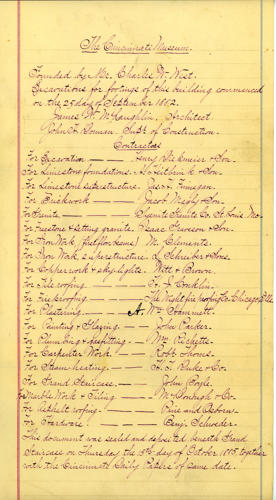 The Cincinnati Museum.
Founded by Mr. Charles W. West.
Excavations for footings of this building commenced
on the 2nd day of September 1882.
James W. McLaughlin, Architect.
John H. Supt. of Construction.
Contractors
For Excavation — Henry & Son.
For Limestone foundations. & Co.
For Limestone superstructure. Jas. J. Finnegan.
For Brickwork — Jacob & Son.
For Granite — Granite Co. St. Louis Mo.
For Freestone & setting granite. Isaac Graveson & Son.
For Iron Work (first floor beams) M. Clements.
For Iron Work superstructure. L. Schreiber & Sons.
For Copper work & sky-lights. Witt & Brown.
For Tile roofing — Conklin.
For Fireproofing — The Wight fireproofing Co. Chicago Ills
For Plastering — Wm. Hammett.
For Painting & Glazing. — John Parker.
For Plumbing & gasfitting — Wm. Ricketts.
For Carpenter Work. — Robt.
For Steam heating. — & Co.
For Grand Staircase. — John
For Marble Work & Tiling — & Co.
For Asphalt roofing. — and Osborn.
For Hardware — Benj. Schroder.
This document was sealed and deposited beneath Grand
Staircase on Thursday the 8th day of October 1885, together
with the Cincinnati Daily Papers of same date.